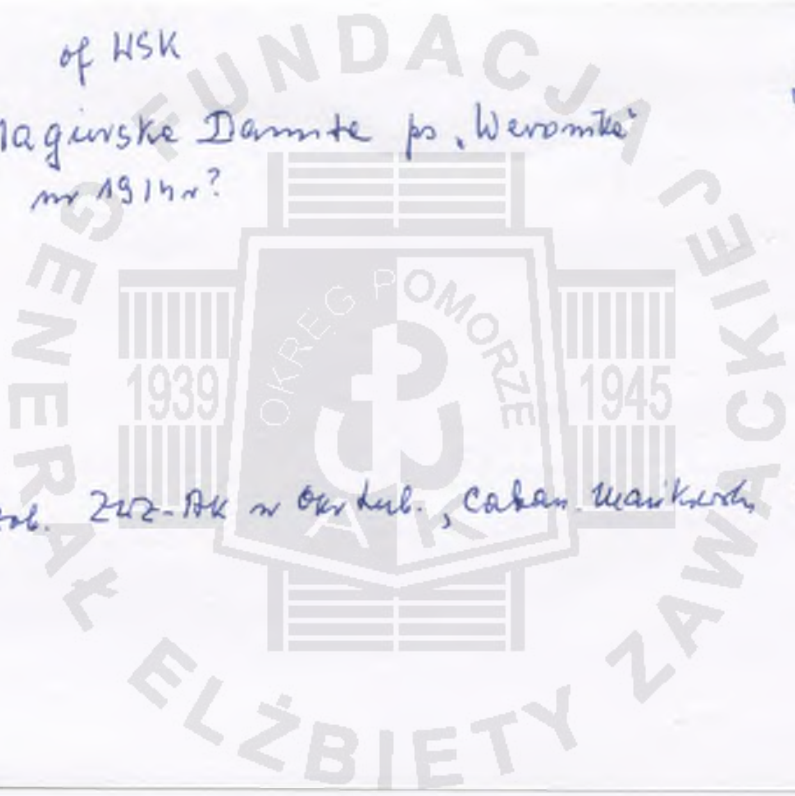 of WSK
Magierska Danuta ps. "Weronika"
ur 1914 r?
zob. ZWZ-AK w Okr Lub.,
FUNDACJA
GENERAŁ ELŻBIETY ZAWACKIEJ
OKRĘG POMORZE
1939 1945
AK